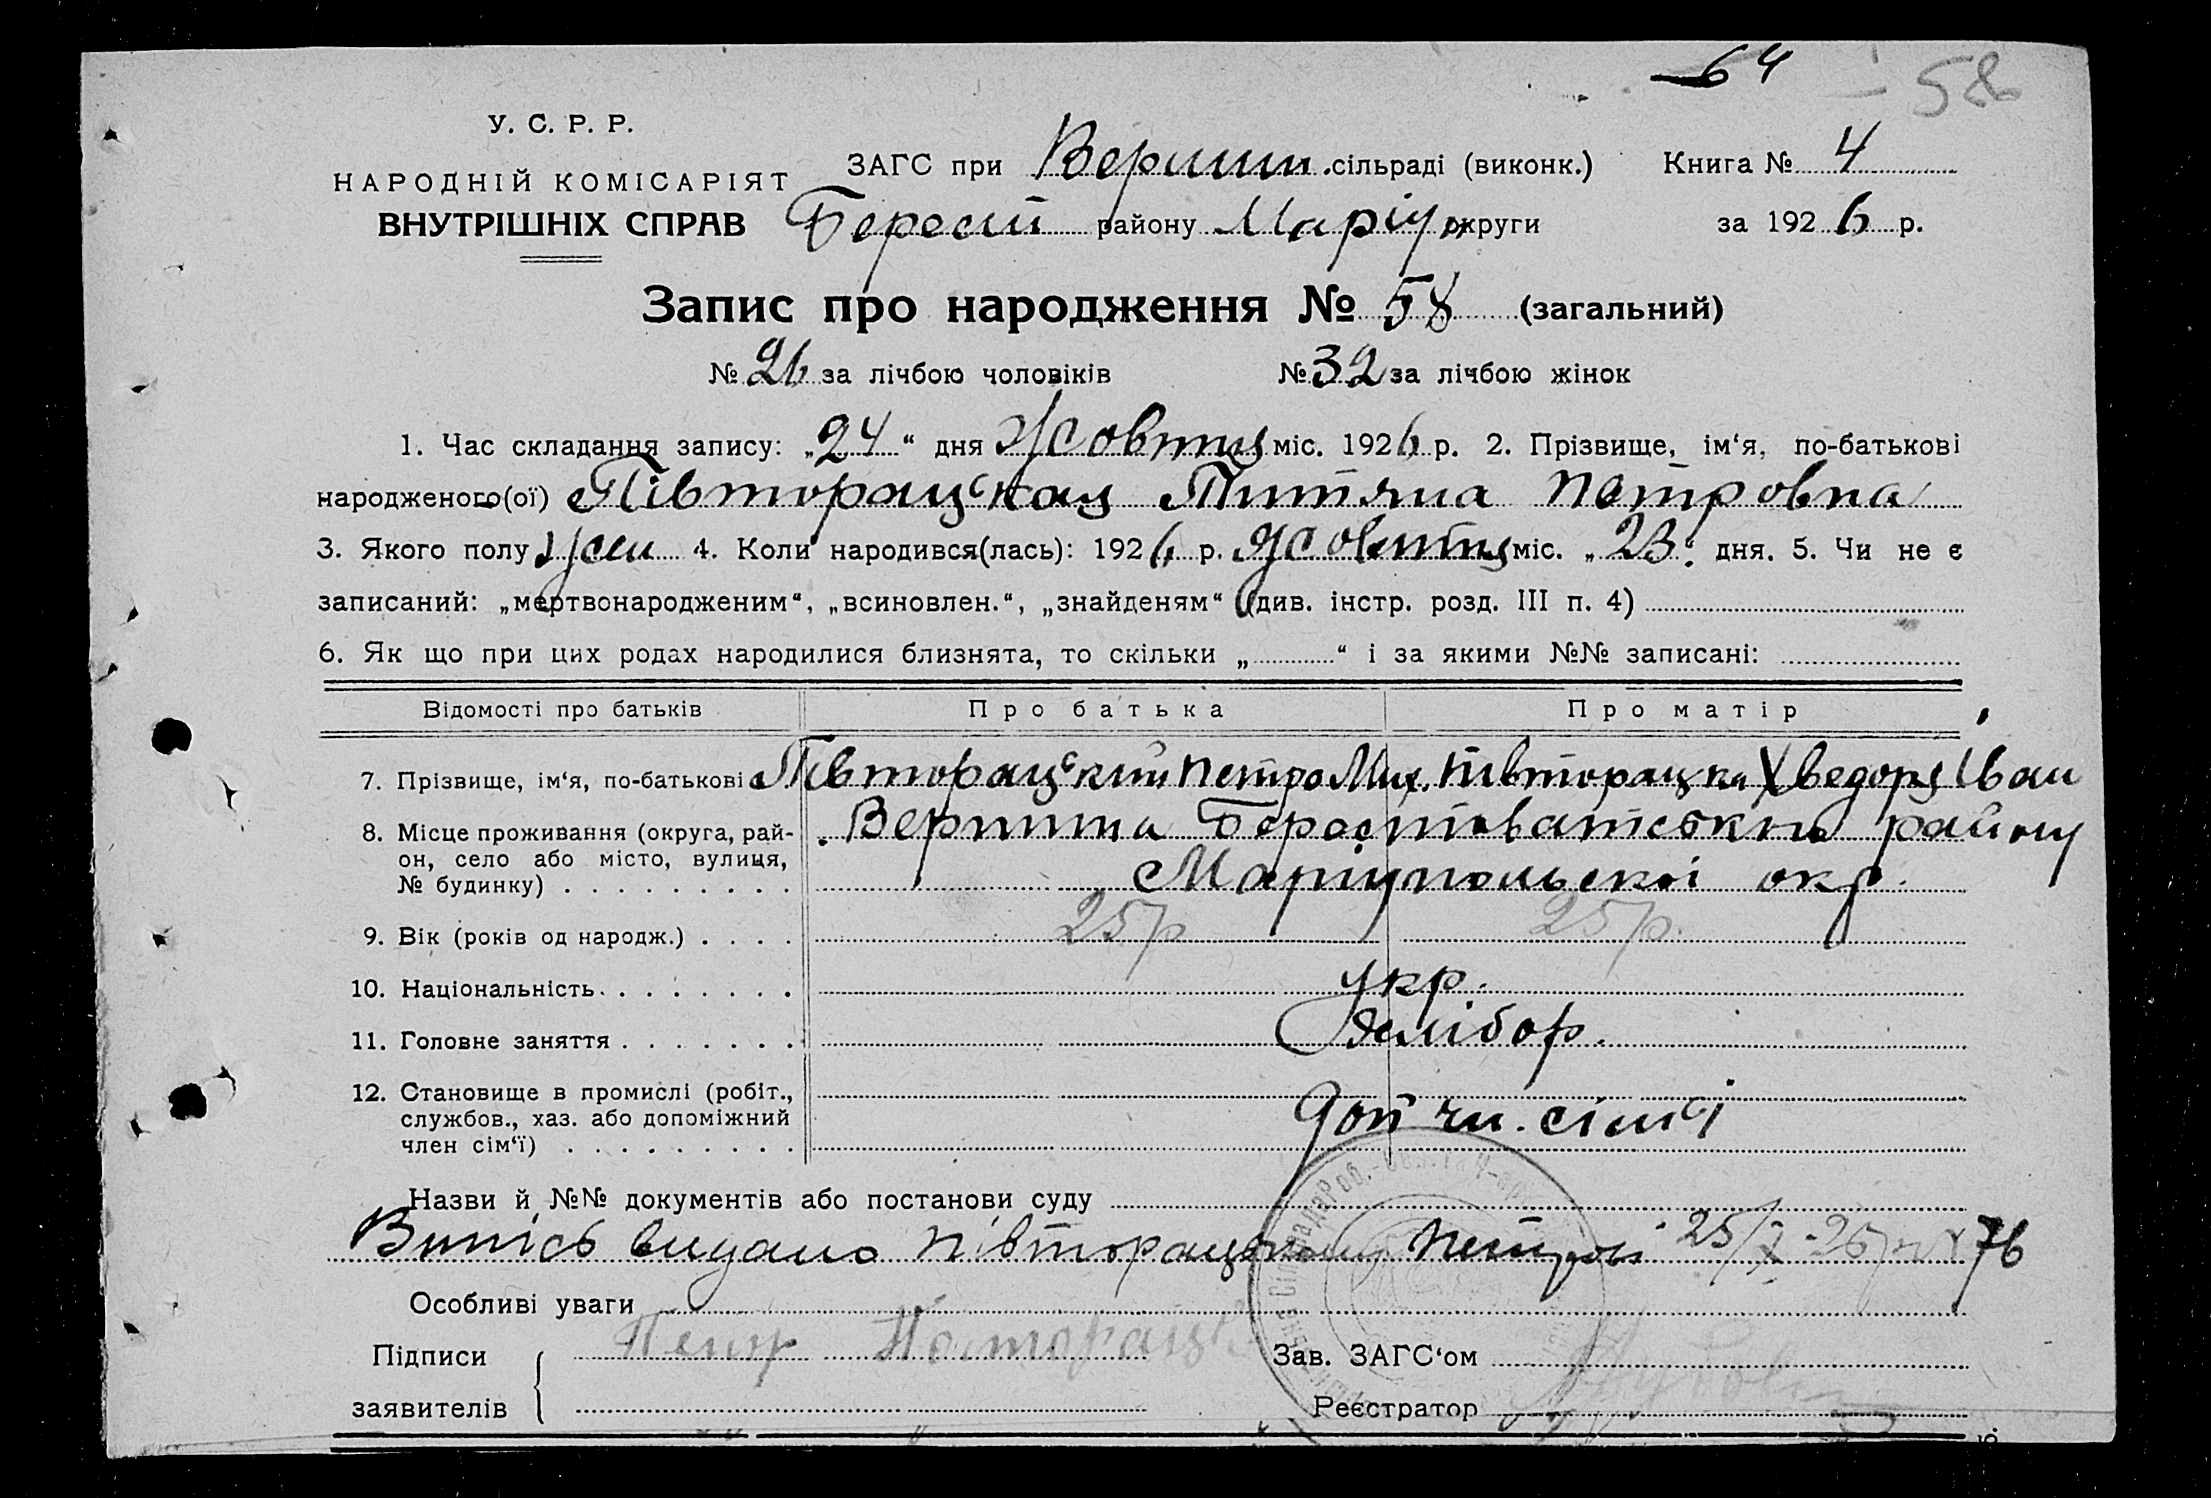 64 58
У. С. Р. Р.
НАРОДНІЙ КОМІСАРІЯТ
ВНУТРІШНІХ СПРАВ
ЗАГС при Вершин. сільраді (виконк.) Книга № 4
Берест району Маріуп округи за 1926 р.
Запис про народження № 58 (загальний)
№ 26 за лічбою чоловіків № 32 за лічбою жінок
1. Час складання запису: „24“ дня Жовтня міс. 1926 р. 2. Прізвище, ім‘я, по-батькові
народженого(ої) Півторацская Титяна Петровна
3. Якого полу жен 4. Коли народився(лась): 1926 р. Жовтня міс. „23“ дня. 5. Чи не є
записаний: „мертвонародженим“, „всиновлен.“, „знайденям“ (див. інстр. розд. III п. 4)
6. Як що при цих родах народилися близнята, то скільки „ “ і за якими №№ записані:
Відомості про батьків Про батька Про матір
7. Прізвище, ім‘я, по-батькові Півторацский Петро Мих. Півторацка Хведоря Іван
8. Місце проживання (округа, рай-
он, село або місто, вулиця,
№ будинку)
Вершина Берестоватськио району
Маріупольскоі окр.
9. Вік (років од народж.) 25 р 25 р.
10. Національність укр.
11. Головне заняття хлібор.
12. Становище в промислі (робіт.,
службов., хаз. або допоміжний
член сім‘ї)
доп чл. сімї
Назви й №№ документів або постанови суду
Випісь видано Півторацькому Петрові 25/X-26 р № 76
Особливі уваги
Підписи
заявителів
Петр
Зав. ЗАГС‘ом
Реєстратор